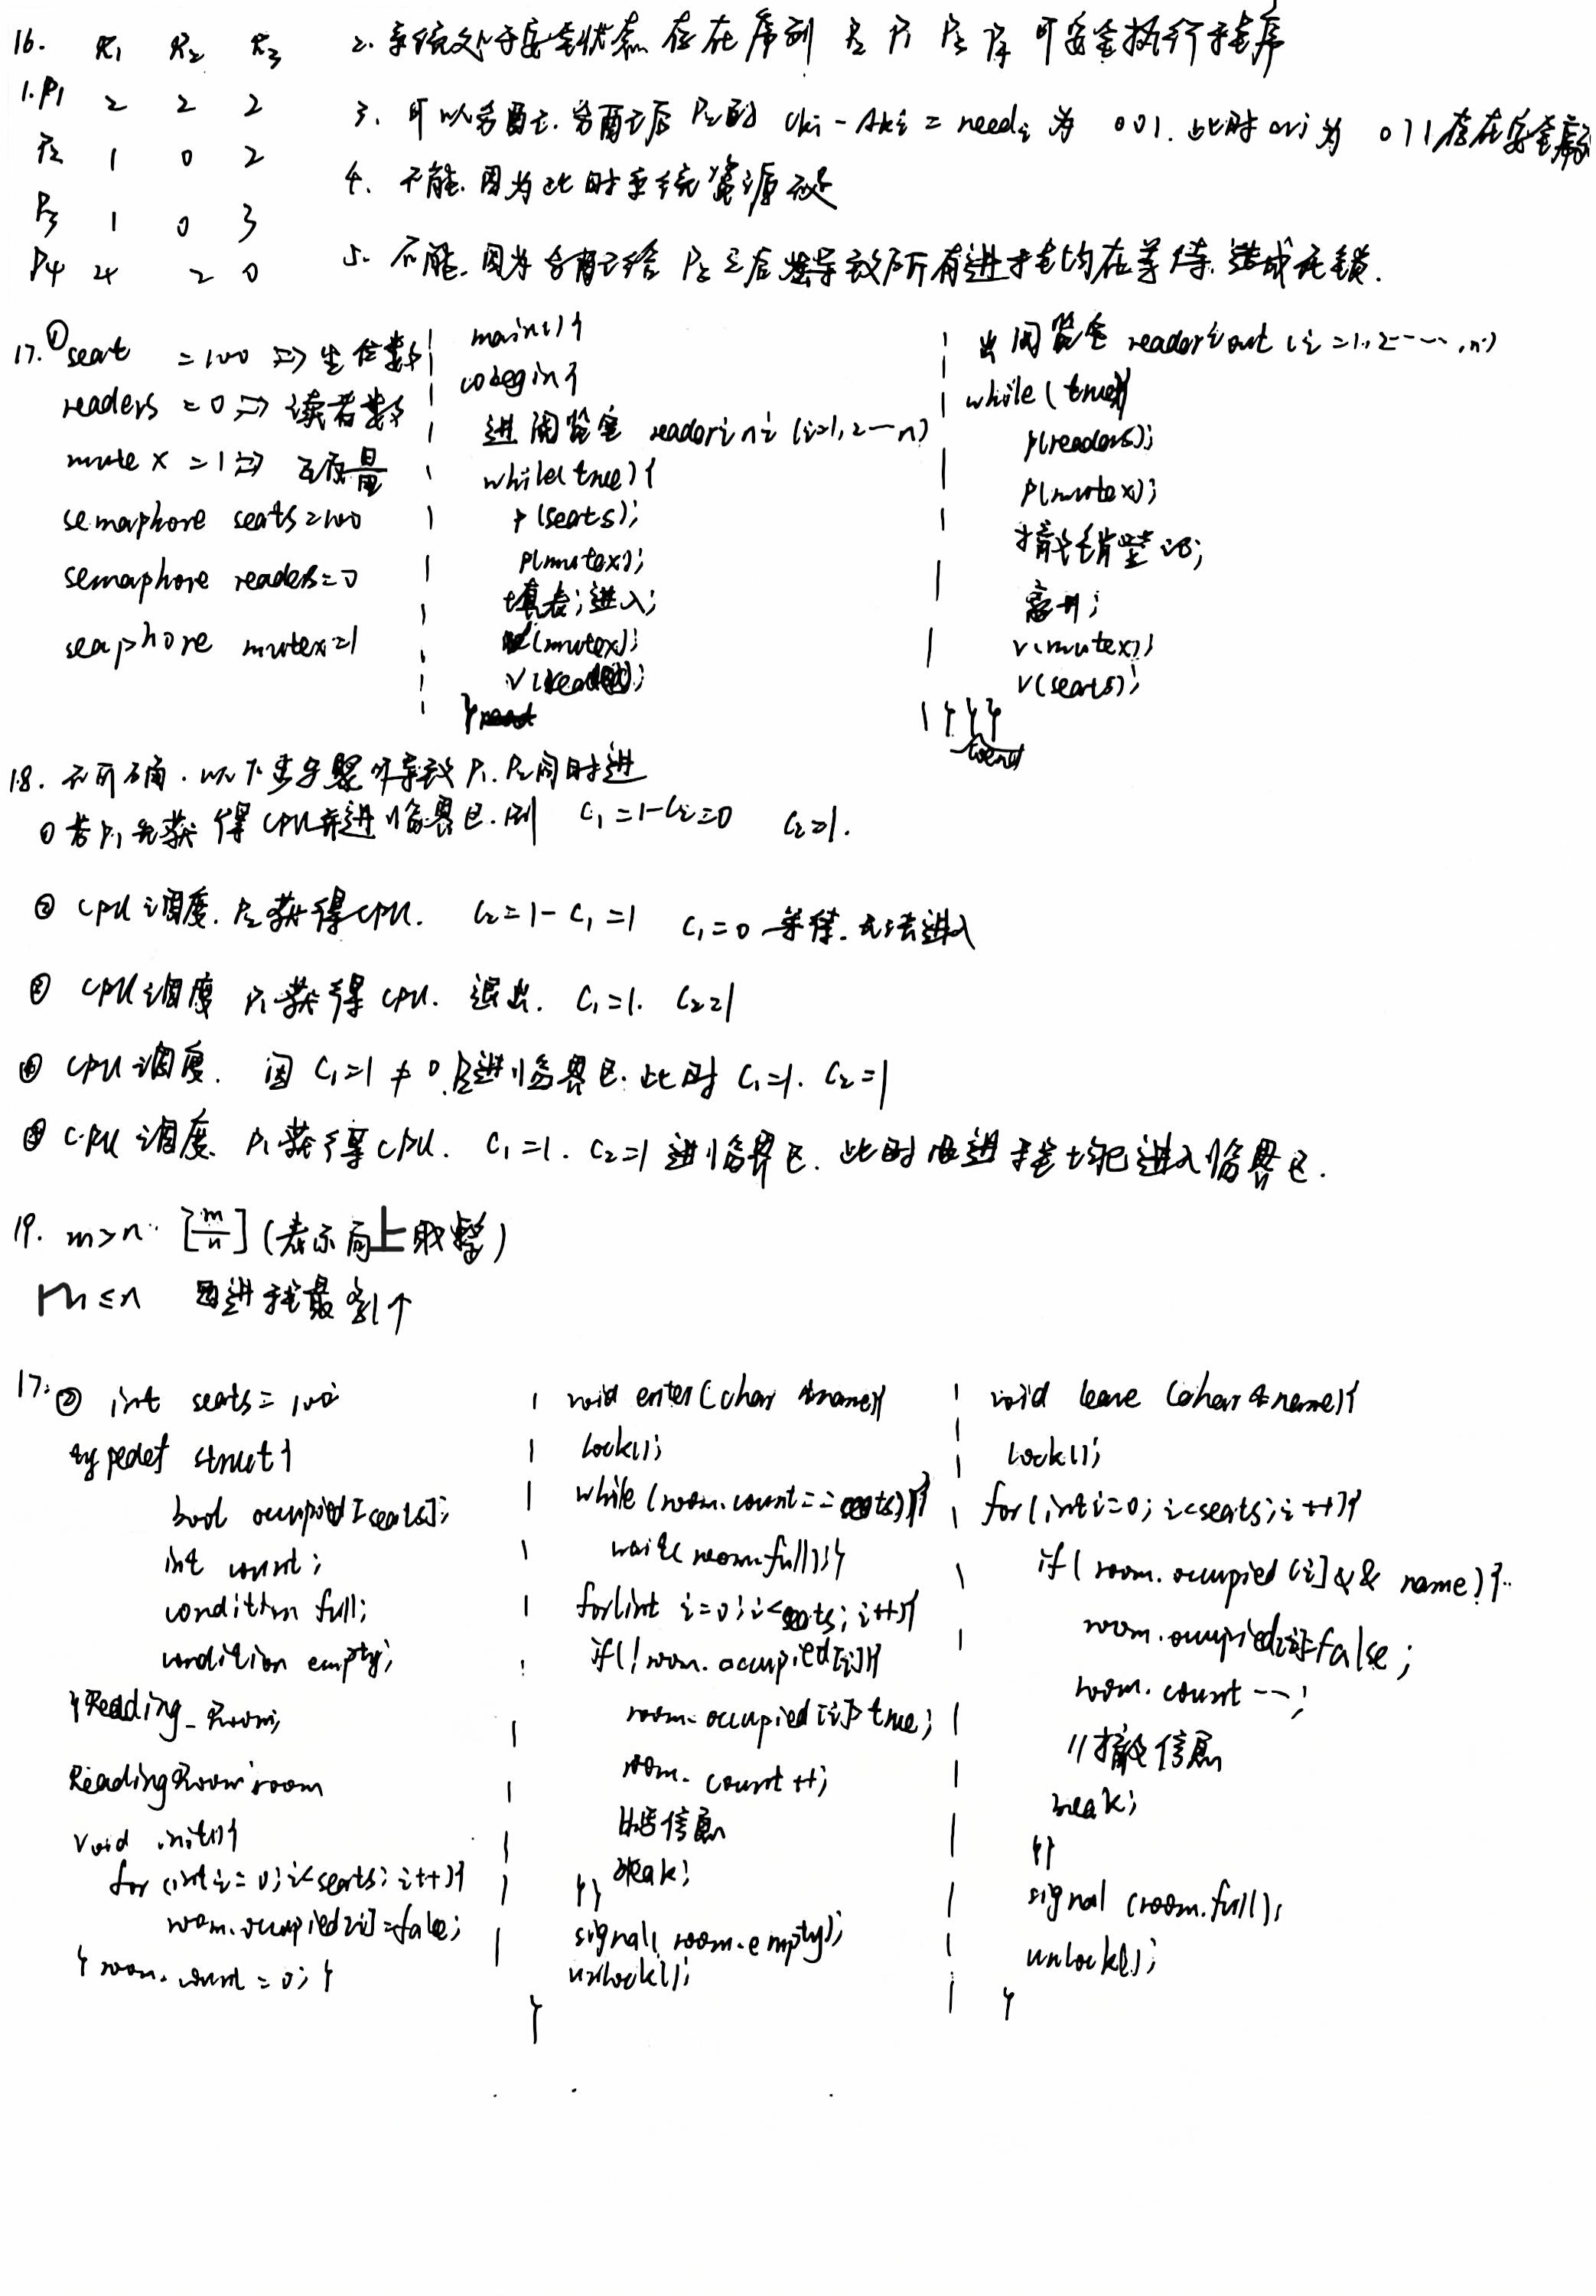 16. R1 R2 R3
1. P1 2 2 2
P2 1 0 2
P3 1 0 3
P4 4 2 0
2. 系统处于安全状态 存在序列 P2 P1 P3 P4 可安全执行程序
3. 可以分配它. 分配它后 P2的 Cki - Aki = need2 为 001. 此时 avi 为 011 存在安全序列
4. 不能. 因为此时系统资源不足
5. 不能. 因为分配它给 P3之后 导致所有进程均在等待. 造成死锁.
17. ① seat = 100 => 座位数
readers = 0 => 读者数
mutex = 1 => 互斥量
semaphore seats=100
semaphore readers=0
seaphore mutex=1
main(){
cobegin{
进阅览室 readerini (i=1,2…n)
while(true){
p(seats);
p(mutex);
填表; 进入;
V(mutex);
V(readers);
}
出阅览室 readeriout (i=1,2……,n)
while(true){
p(readers);
p(mutex);
撤销登记;
离开;
V(mutex);
V(seats);
}}}
18. 不正确. 以下步骤可导致 P1. P2同时进
① 若P1先获得CPU并进临界区. 则 C1=1-C2=0 C2=1.
② CPU调度. P2获得CPU. C2=1-C1=1 C1=0 等待. 无法进入
③ CPU调度 P1获得CPU. 退出. C1=1. C2=1
④ CPU调度. 因 C1=1≠0. P2进临界区. 此时 C1=1. C2=1
⑤ CPU调度. P1获得CPU. C1=1. C2=1 进临界区. 此时两进程均已进入临界区.
19. m>n [m/n] (表示向上取整)
m≤n 进程最多1个
17. ② int seats = 100;
typedef struct{
bool occupied[seats];
int count;
condition full;
condition empty;
}Reading_Room;
ReadingRoom room
void init(){
for(int i=0;i<seats;i++){
room.occupied[i]=false;
} room.count=0; }
void enter(char *name){
lock();
while(room.count==seats){
wait(room.full);}
for(int i=0;i<seats;i++){
if(!room.occupied[i]){
room.occupied[i]=true;
room.count++;
break;
}}
signal(room.empty);
unlock();
}
void leave(char *name){
lock();
for(int i=0;i<seats;i++){
if(room.occupied[i] && name){
room.occupied[i]=false;
room.count--;
//撤销信息
break;
}}
signal(room.full);
unlock();
}